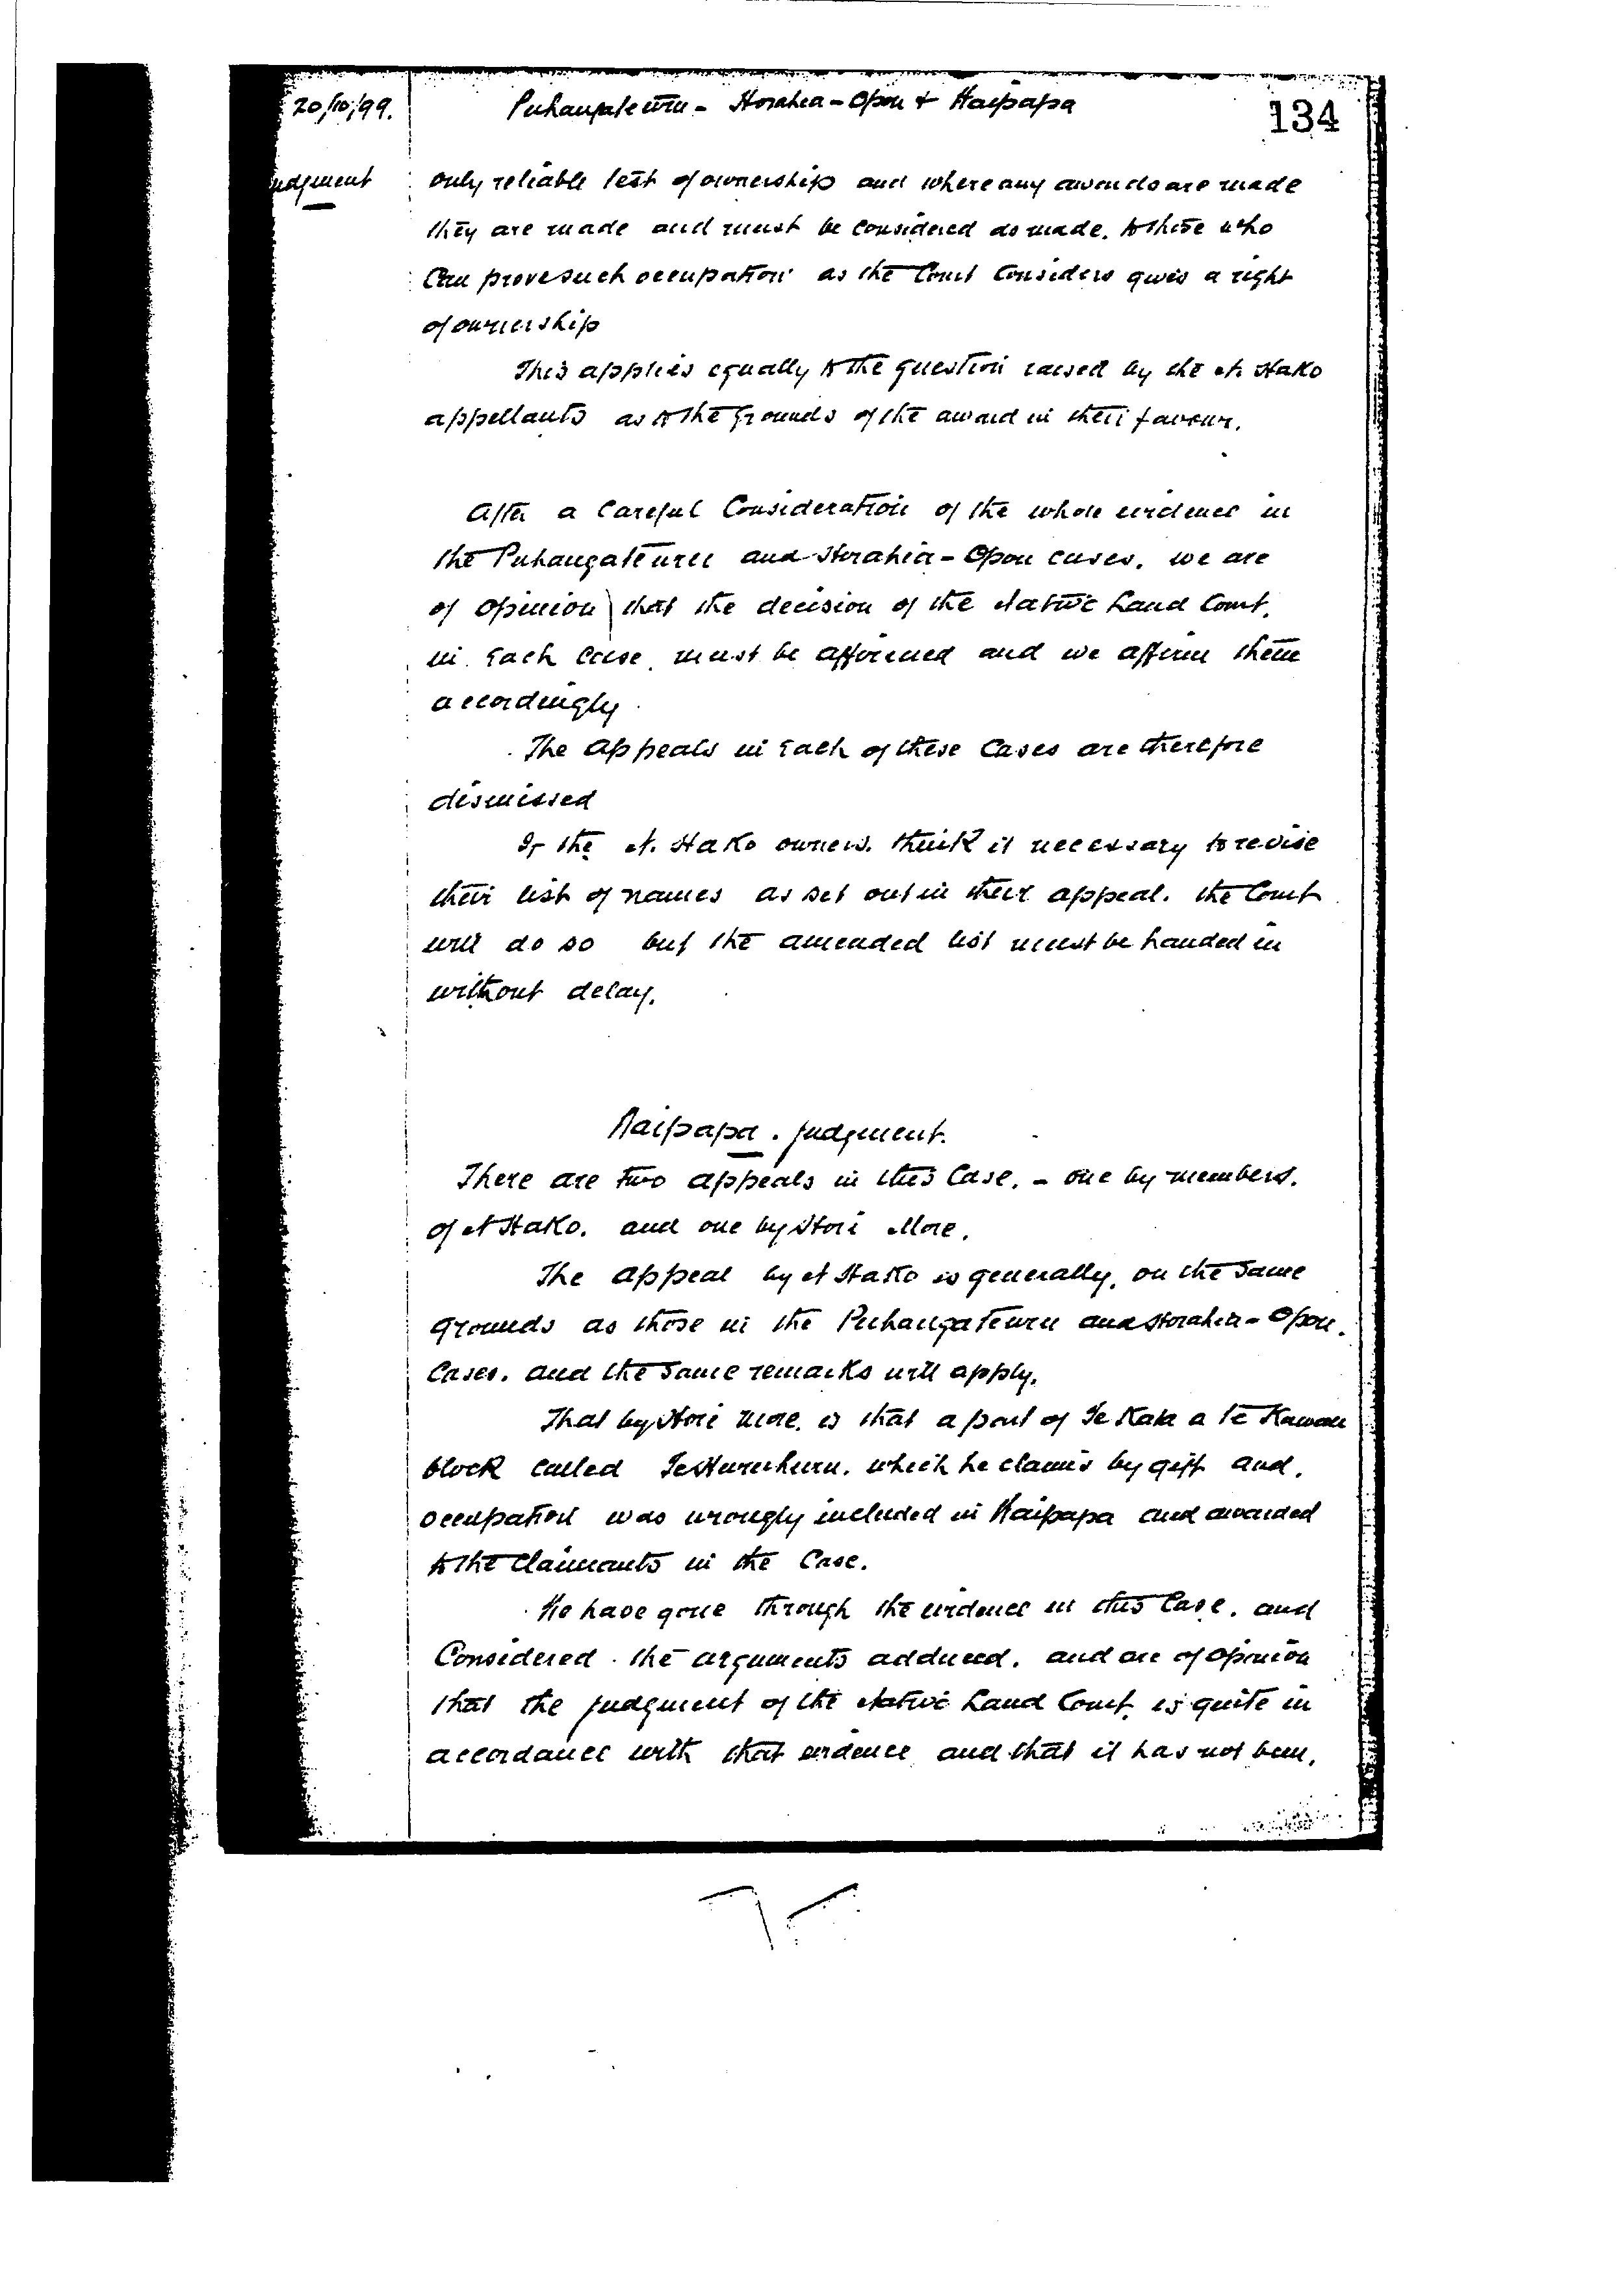 20/10/99. Puhangateuru - Horahia - Opou & Kaipapa 134
Judgment only reliable test of ownership and where any awards are made
they are made and must be considered as made. to those who
Can prove such occupation as the Court Considers gives a right
of ownership
This applies equally to the question raised by the N. Hako
appellants as to the grounds of the award in their favour.
After a Careful Consideration of the whole evidence in
the Puhangateuru and Horahia - Opou cases. we are
of opinion that the decision of the Native Land Court.
in each case must be affirmed and we affirm them
accordingly.
The appeals in each of these Cases are therefore
dismissed
If the N. Hako owners. think it necessary to revise
their list of names as set out in their appeal. the Court
will do so but the amended list must be handed in
without delay.
Kaipapa. Judgment.
There are two appeals in this Case. - one by members.
of N Hako. and one by Hori More.
The appeal by N Hako is generally, on the same
grounds as those in the Puhangateuru and Horahia - Opou.
Cases. and the same remarks will apply.
That by Hori More. is that a part of Te Kaka a te Kawau
block called Te Huruhuru. which he claims by gift and.
occupation was wrongly included in Kaipapa and awarded
to the Claimants in the Case.
We have gone through the evidence in this Case. and
Considered the arguments adduced. and are of opinion
that the judgment of the Native Land Court. is quite in
accordance with that evidence and that it has not been.